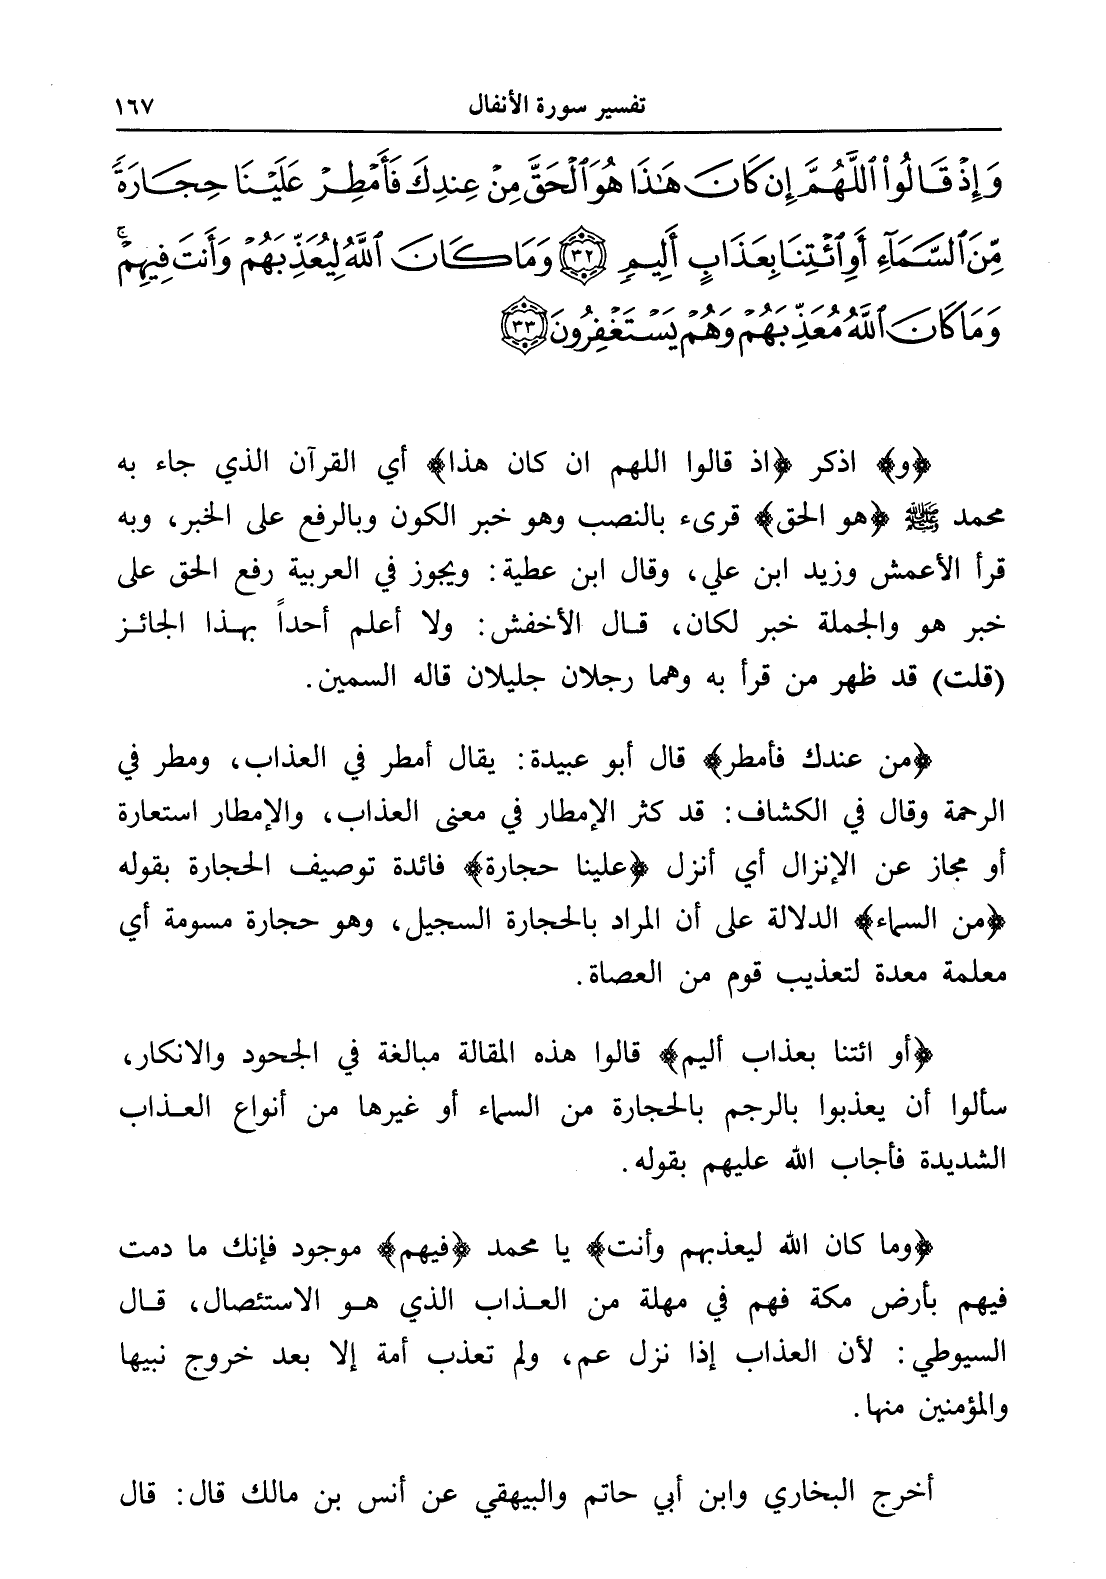 تفسير سورة الأنفال ١٦٧
وَإِذْ قَالُوا۟ ٱللَّهُمَّ إِن كَانَ هَـٰذَا هُوَ ٱلْحَقَّ مِنْ عِندِكَ فَأَمْطِرْ عَلَيْنَا حِجَارَةً
مِّنَ ٱلسَّمَآءِ أَوِ ٱئْتِنَا بِعَذَابٍ أَلِيمٍ ٣٢ وَمَا كَانَ ٱللَّهُ لِيُعَذِّبَهُمْ وَأَنتَ فِيهِمْ ۚ
وَمَا كَانَ ٱللَّهُ مُعَذِّبَهُمْ وَهُمْ يَسْتَغْفِرُونَ ٣٣
﴿و﴾ اذكر ﴿اذ قالوا اللهم ان كان هذا﴾ أي القرآن الذي جاء به
محمد ﷺ ﴿هو الحق﴾ قرىء بالنصب وهو خبر الكون وبالرفع على الخبر، وبه
قرأ الأعمش وزيد ابن علي، وقال ابن عطية: ويجوز في العربية رفع الحق على
خبر هو والجملة خبر لكان، قال الأخفش: ولا أعلم أحداً بهذا الجائز
(قلت) قد ظهر من قرأ به وهما رجلان جليلان قاله السمين.
﴿من عندك فأمطر﴾ قال أبو عبيدة: يقال أمطر في العذاب، ومطر في
الرحمة وقال في الكشاف: قد كثر الإمطار في معنى العذاب، والإمطار استعارة
أو مجاز عن الإنزال أي أنزل ﴿علينا حجارة﴾ فائدة توصيف الحجارة بقوله
﴿من السماء﴾ الدلالة على أن المراد بالحجارة السجيل، وهو حجارة مسومة أي
معلمة معدة لتعذيب قوم من العصاة.
﴿أو ائتنا بعذاب أليم﴾ قالوا هذه المقالة مبالغة في الجحود والانكار،
سألوا أن يعذبوا بالرجم بالحجارة من السماء أو غيرها من أنواع العذاب
الشديدة فأجاب الله عليهم بقوله.
﴿وما كان الله ليعذبهم وأنت﴾ يا محمد ﴿فيهم﴾ موجود فإنك ما دمت
فيهم بأرض مكة فهم في مهلة من العذاب الذي هو الاستئصال، قال
السيوطي: لأن العذاب إذا نزل عم، ولم تعذب أمة إلا بعد خروج نبيها
والمؤمنين منها.
أخرج البخاري وابن أبي حاتم والبيهقي عن أنس بن مالك قال: قال